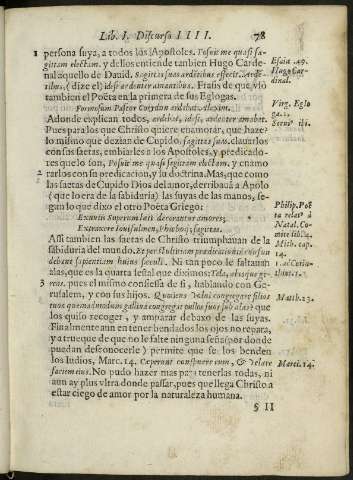 Lib. I. Discurso IIII. 78
1 persona suya, a todos las Apostoles. Posuit me quasi sa-
gittam electam. y dellos entiende tanbien Hugo Carde-
nal aquello de Dauid. Sagittas suas ardentibus effecit. Arde-
tibus, (dize el) idest ardenter amantibus. Frasis de que vsò
tambien el Poëta en la primera de sus Eglogas.
Formosum Pastor Corydon ardebat Alexim.
Adonde explican todos, ardebat, idest, ardenter amabat.
Pues para los que Christo quiere enamorar, que haze?
lo mismo que dezan de Cupido. sagittas suas. clauarlos
con sus saetas, embiarles a los Apostoles, y predicado-
res que lo son, Posuit me quasi sagittam electam. y enamo
2 rarlos con su predicacion, y su doctrina. Mas, que como
las saetas de Cupido Dios del amor, derribauã a Apolo
(que lo era de la sabiduria) las suyas de las manos, se-
gun lo que dixo el otro Poëta Griego:
Exuvijs Superum luis decorantur amores;
Extraxere Iouis fulmen, Phœboq; sagittas.
Assi tambien las saetas de Christo triumphauan de la
sabiduria del mundo.
alas, que es la quarta señal que diximos:
3 pues el mismo confiessa de si, hablando con Ge-
rusalem, y con sus hijos. Quoties volui congregare filios
tuos quemadmodum gallina congregat pullos suos sub alas? que
los quiso recoger, y amparar debaxo de las suyas.
Finalmente aun en tener bendados los ojos no repara,
y a trueque de que no le falte ninguna seña (por donde
puedan desconocerle) permite que se los benden
los Iudios, Marc. 14. Cœperunt conspuere eum, & velare
faciem eius. No pudo hazer mas para tenerlas todas, ni
aun ay plus vltra donde passar, pues que llega Christo a
estar ciego de amor por la naturaleza humana.
§ II
Esaiæ .49.
Hugo Car-
dinal.
Virg. Eglo
ga. 1.
Serui' ibi.
Philip. Poë
ta relat' à
Natal. Co
mite lib. 4.
Mith. cap.
14.
1. ad Corin-
thior. 1.
Matth. 23.
Marci. 14.